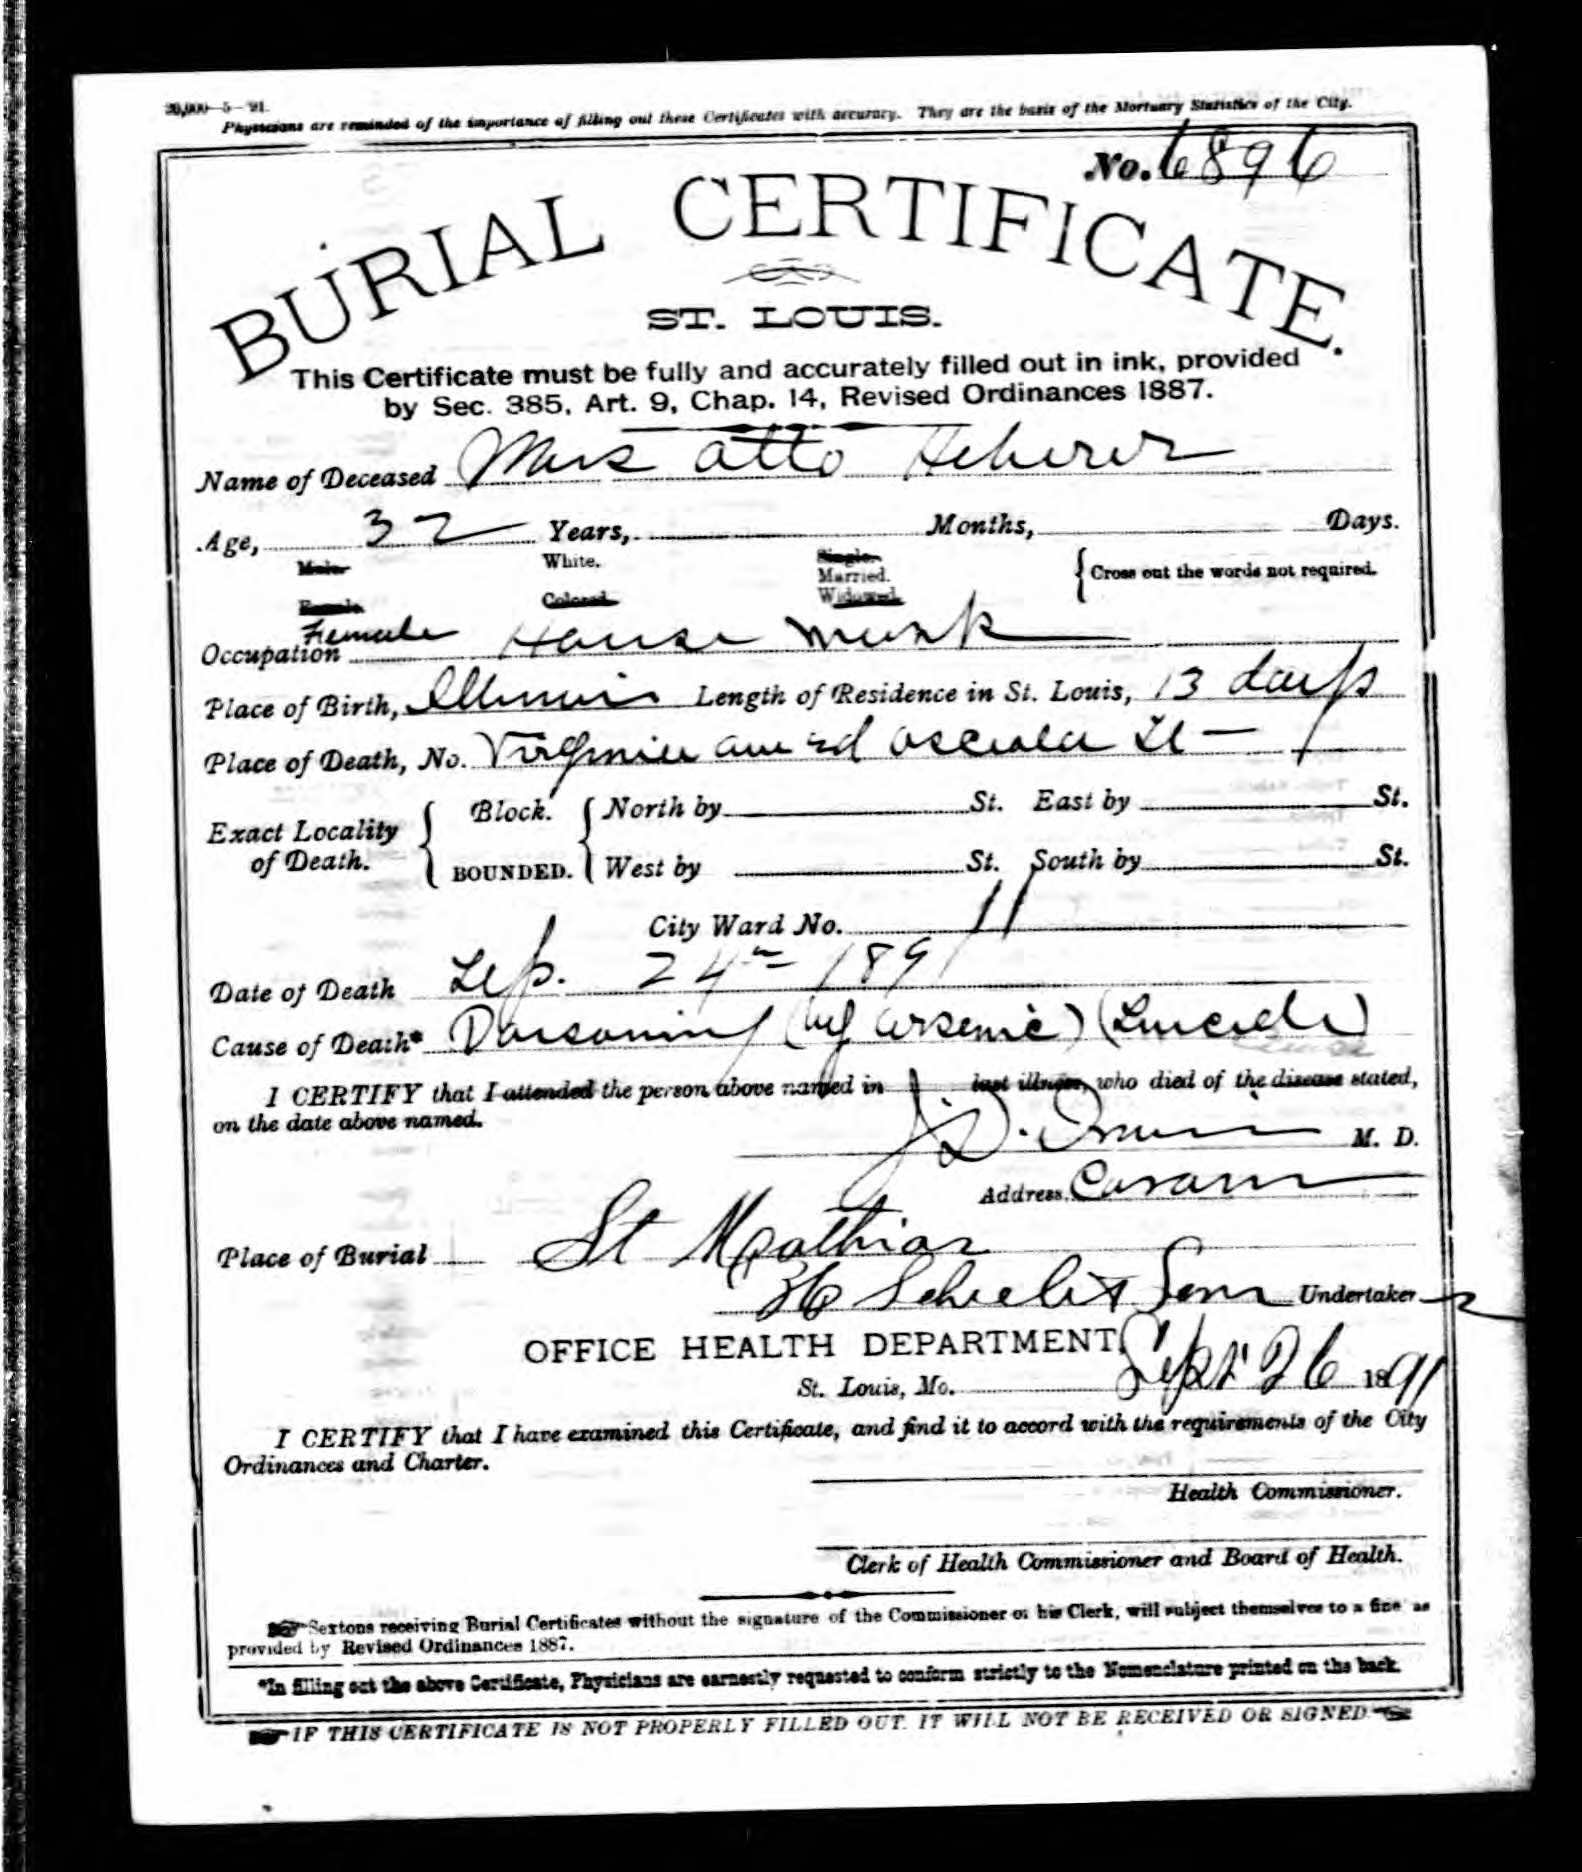 20,000—5—'91.
Physicians are reminded of the importance of filling out these Certificates with accuracy. They are the basis of the Mortuary Statistics of the City.
No. 6896
BURIAL CERTIFICATE.
ST. LOUIS.
This Certificate must be fully and accurately filled out in ink, provided
by Sec. 385, Art. 9, Chap. 14, Revised Ordinances 1887.
Name of Deceased Mrs Otto
Age, 32 Years, Months, Days.
Male. White. Single. Cross out the words not required.
Married.
Female. Colored. Widowed.
Female
Occupation House Work
Place of Birth, Illinois Length of Residence in St. Louis, 13 days
Place of Death, No. Virginia av and Osceola St
Exact Locality of Death. Block. North by St. East by St.
BOUNDED. West by St. South by St.
City Ward No. 11
Date of Death Sep. 24th 1891
Cause of Death* Poisoning (by arsenic) (Suicide)
I CERTIFY that I attended the person above named in last illness, who died of the disease stated,
on the date above named.
M. D.
Address,
Place of Burial St Mathias
& Son Undertaker
OFFICE HEALTH DEPARTMENT,
St. Louis, Mo. Sept 26 1891
I CERTIFY that I have examined this Certificate, and find it to accord with the requirements of the City
Ordinances and Charter.
Health Commissioner.
Clerk of Health Commissioner and Board of Health.
Sextons receiving Burial Certificates without the signature of the Commissioner or his Clerk, will subject themselves to a fine as
provided by Revised Ordinances 1887.
*In filling out the above Certificate, Physicians are earnestly requested to conform strictly to the Nomenclature printed on the back.
IF THIS CERTIFICATE IS NOT PROPERLY FILLED OUT, IT WILL NOT BE RECEIVED OR SIGNED.